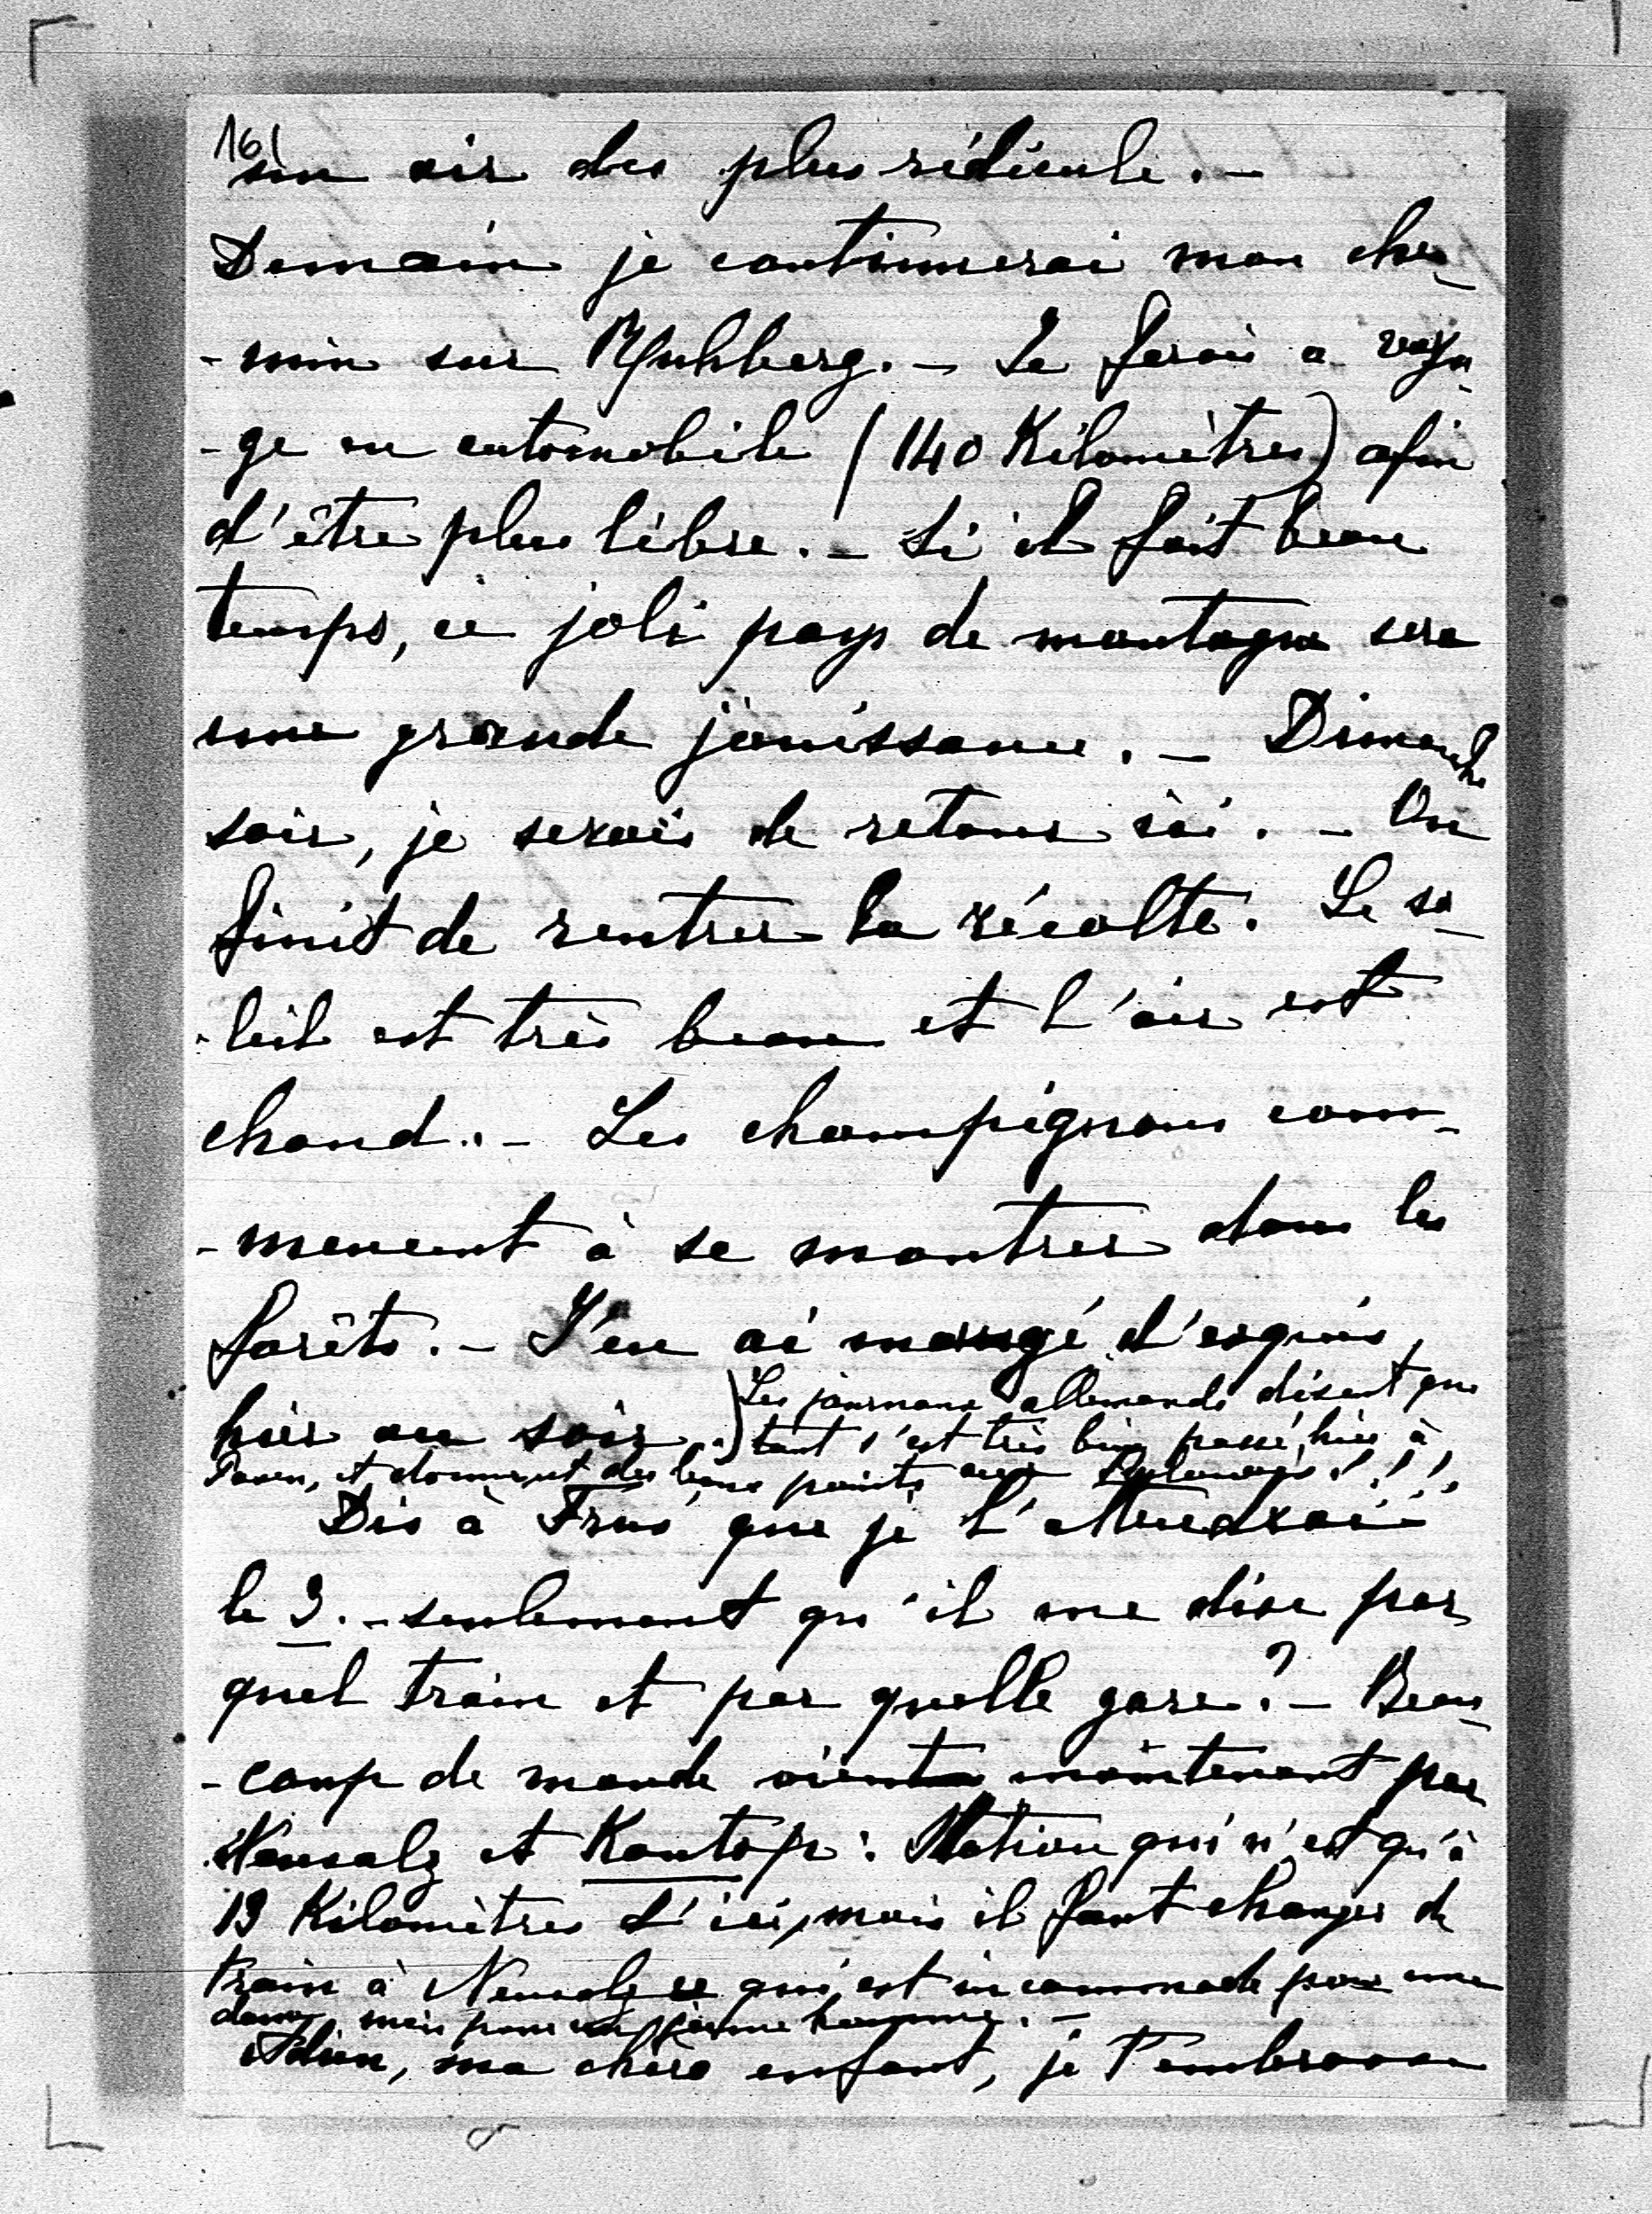 16)
un air des plus ridicule. -
Demain je continuerai mon che-
- min sur Muhlberg. - Je ferai ce voya-
- ge en automobile (140 Kilomètres) afin
d'être plus libre. - Si il fait beau
temps, ce joli pays de montagne sera
une grande jouissance. - Dimanche
soir, je serais de retour ici. - On
finit de rentrer la récolte. Le so-
- leil est très beau et l'air est
chaud. - Les champignons com-
- mencent à se montrer dans les
forêts. - J'en ai mangé d'exquis,
hier au soir.) Les journaux allemands disent que
tout s'est très bien passé, hier à
Posen, et donnent des bons points aux Polonais!!!!
Dis à que je l'attendrai
le 3. - seulement qu'il me dise par
quel train et par quelle gare? - Beau-
- coup de monde vient maintenant par
Neusalz et Kontop: Station qui n'est qu'à
13 Kilomètres d'ici, mais il faut changer de
train à Neusalz ce qui est incommode pour une
dame, mais pour un jeune homme. -
Adieu, ma chère enfant, je t'embrasse